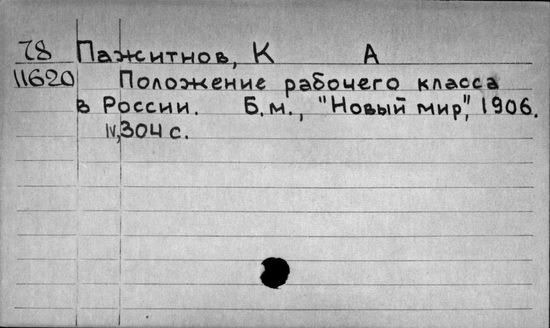 78 Пажитнов, К А
11620 Положение рабочего класса
в России. Б.м., "Новый мир", 1906.
IV, 304 с.